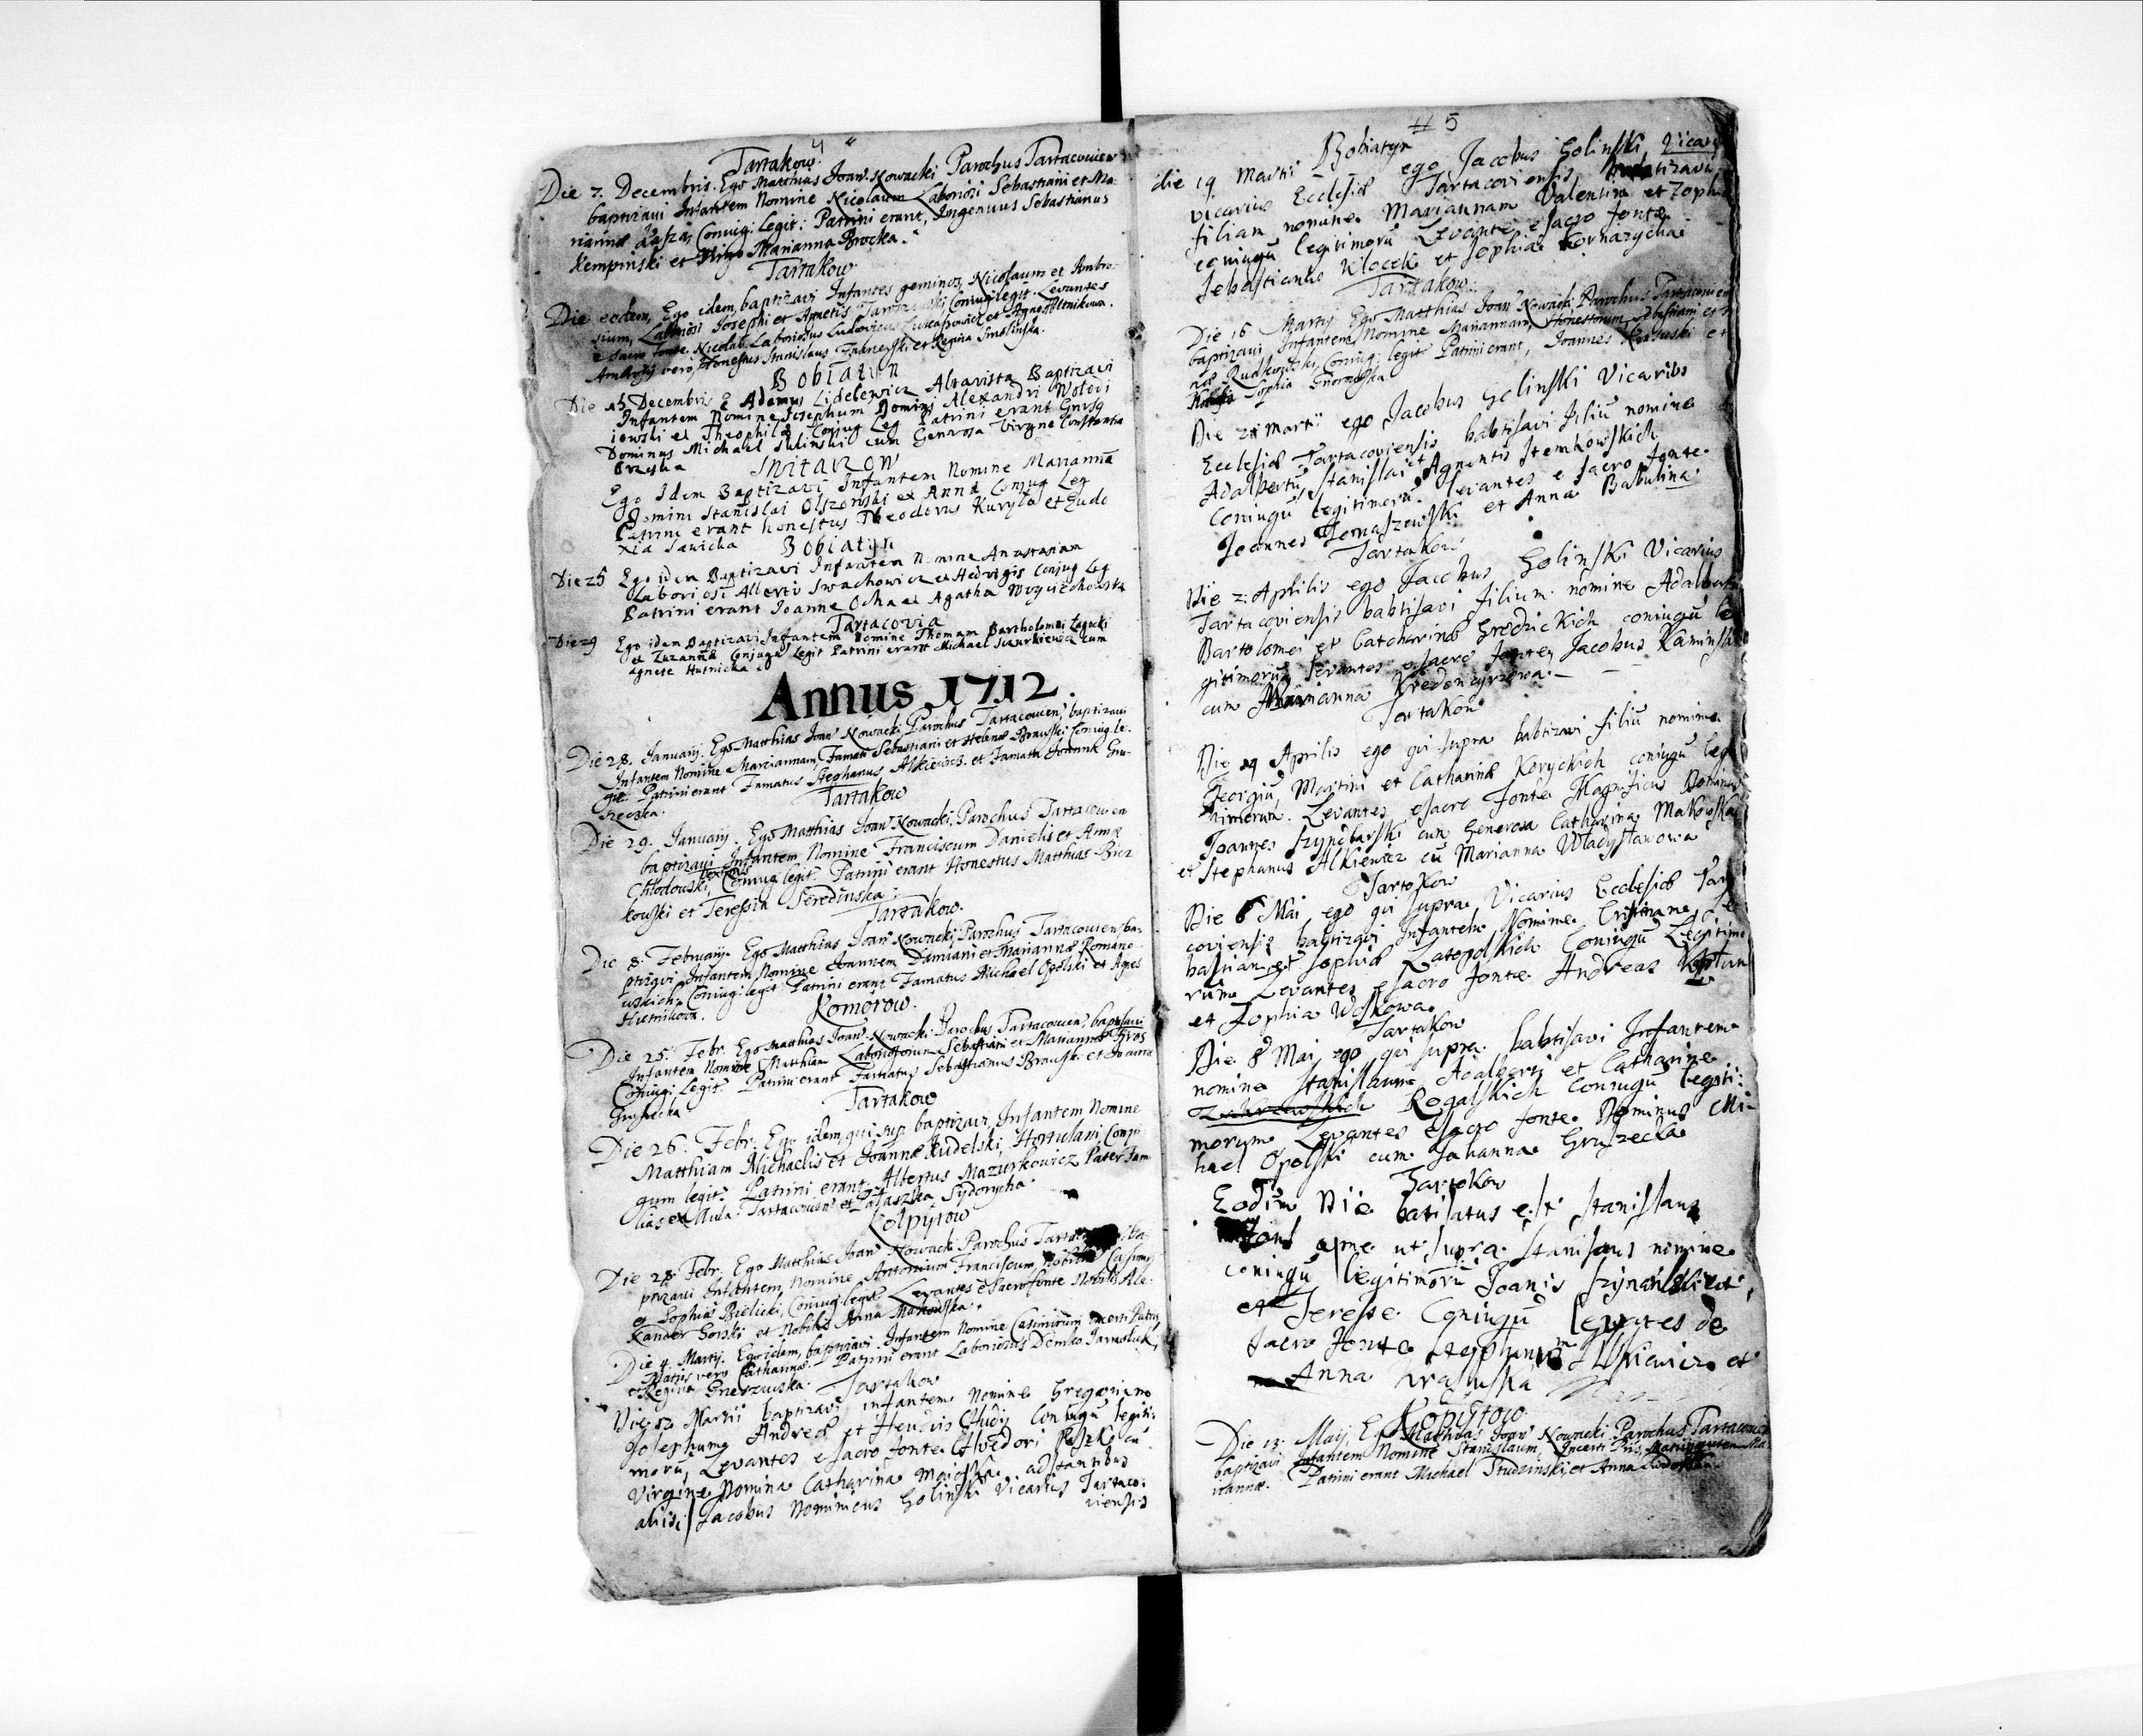 4
Tartakow.
Die 7. Decembris. Ego Matthias Joan. Nowacki Parochus Tartacovien
baptizavi Infantem Nomine Nicolaum Laboriosi Sebastiani et Ma-
riannæ Conjug: Legit: Patrini erant, Ingenuus Sebastianus
Kempinski et Virgo Marianna Brocka.
Tartakow
Die eodem, Ego idem, baptizavi Infantes geminos, Nicolaum et Ambro-
sium, Laboriosi Josephi et Agnetis Conjug legit. Levantes
e Sacro fonte Nicolaū Laboriosus Ludovicus et Agnes
Ambrosiū vero, Honestus Stanislaus et Regina Smolinska.
Bobiatyn
Die 15 Decembris E Adamus Lidelewicz Altarista Baptizavi
Infantem Nomine Josephum Domini Alexandri Wolodi
iowski et Theophilæ Conjug Leg Patrini erant Gnrsg
Dominus Michael Sulinski cum Generosa Virgine Constantia
Brzeska
Spitarow
Ego Idem Baptizavi Infantem Nomine Mariannā
Domini Stanislai Olszowski et Annæ Conjug Leg
Patrini erant honestus Theodorus Kuryło et Eudo
xia Sawicka
Bobiatyn
Die 25 Ego idem Baptizavi Infantem Nomine Anastasiam
Laboriosi Alberti Iwachowicz et Hedvigis Conjug Leg
Patrini erant Joanne Ocha et Agatha Woyciechowska
Tartacovia
Die 29 Ego idem Baptizavi Infantem Nomine Thomam Bartholomei Zagocki
et Zuzannæ Conjugū Legit Patrini erant Michael cum
Agnete Hutnicka
Annus 1712.
Die 28. January. Ego Matthias Joan Nowacki Parochus Tartacovien, baptizavi
Infantem Nomine Mariannam, Famati Sebastiani et Helenæ Brauski Conjug. le-
git. Patrini erant Famatus Stephanus Alkiewicz et Famata Joanna Gru-
szecka.
Tartakow
Die 29. January. Ego Matthias Joan Nowacki, Parochus Tartacovien
baptizavi Infantem Nomine Franciscum Danielis et Annæ
Chłodowski, textoris Conjug legit. Patrini erant Honestus Matthias Bier
kowski et Teressia Seredinska.
Tartakow.
Die 8. February. Ego Matthias Joan Nowacki, Parochus Tartacovien, ba-
ptizavi Infantem Nomine Joannem Damiani et Mariannæ Romano
wskich Conjug: legit Patrini erant Famatus Michael Opolski et Agnes
Hutnikowa.
Komorow.
Die 25. Febr. Ego Matthias Joan Nowacki Parochus Tartacovien, baptizavi
Infantem Nomine Matthiam Laboriosorum Sebastiani et Mariannæ Gros
Conjug: Legit. Patrini erant Famatus Sebastianus Brauski et Joanna
Gruszecka
Tartakow
Die 26. Febr. Ego idem, qui sup: baptizavi, Infantem Nomine
Matthiam Michaelis et Joannæ Rudelski, Hortulani, Conju
gum legit. Patrini erant Albertus Mazurkowicz Pater Fam
lias ex Aula Tartacovien et Pałaszka Sydorycha.
Kopÿtow
Die 28. Febr. Ego Matthias Joan Nowacki Parochus ba
ptizavi Infantem, Nomine Antonium Franciscum, Nobilis Casimiri
et Sophiæ Bielicki, Conjug legit Levantes e Sacro fonte Nobilis Ale-
xander Gorski et Nobilis Anna Makowska.
Die 4. Martij. Ego idem, baptizavi Infantem Nomine Casimirum incerti Patris
Matris vero Catharinæ. Patrini erant Laboriosus Demko Jarmoluk,
et Regina Gnerzuska.
Tartakow
Die 12 Martii baptizavi infantem nomine Gregorium
Josephum Andreæ et Hewdis Chudij Coniugū legiti-
morū, Levantes e sacro fonte Chvedori cu
Virgine Nomina Catharina adstantibus
aliis Jacobus Nominicus Golinski Vicarius Tartaco-
viensis
# 5
Bobiatyn
die 19 Martii ego Jacobus Golinski, Vicari
vicarius Ecclesiæ Tartacoviensis, batizavi
filiam nomine Mariannam Valentini et Zophiæ
coniugū legitimorū Levantes e sacro fonte
Sebastianus Klocek et Sophia Kornarzycha
Tartakow.
Die 16 Martij Ego Matthias Joan Nowacki Parochus Tartacovien
baptizavi Infantem, Nomine Mariannam, Honestorum Sebastiani et
næ Rudkowski, Conjug: legit Patrini erant, Joannes et
Sophia
Die 21 Martii ego Jacobus Golinski Vicarius
Ecclesiæ Tartacoviensis babtisavi filiū nomine
Adalbertū Stanislai et Agnentis Stemkowskich
Coniugū legitimorū. Levantes e sacro fonte
Joannes Tomaszewski et Anna Babulina
Tartakow
Die 2 Aphilis ego Jacobus Golinski Vicarius
Tartacoviensis babtisavi filium nomine Adalbertū
Bartolomei et Catcharinæ Gredzickich coniugū le
gitimorū, Levantes e sacro fonte, Jacobus Kaminski
cum Marianna Kredencyrzowa.
Tartakow
Die 19 Aprilis ego qui supra babtizavi filiū nomine
Georgiū, Martini et Catharinæ Korychich coniugū leg
timorum. Levantes e sacro fonte Magnificus Dominus
Joannes cum Generosa Catharina Makowska
et Stephanus Alkiewicz cū Marianna Władysławowa
Tartakow
Die 6 Mai ego qui supra Vicarius Ecclesiæ Tarta
coviensis babtizavi Infantem Nomine Cristinane, Se
bastiani et Sophiæ Zatopolskich Coniugū Legitimo
rum Levantes e sacro fonte Andreas
et Zophia Woskowa.
Tartakow
Die 8 Mai ego qui supra babtisavi Infantem
nomine Stanislaum Adalberti et Catharinæ
Rogalskich Coniugū legiti-
morum Levantes e sacro fonte Dominus Mi-
hael Opolski cum Johanna Gruszecka
Tartokow
Eodim Die batisatus est Stanislaus
apme ut supra. Stanislaus nomine
coniugū legitimorū Joanis
et Teresse Coniugū levantes de
sacro fonte Stephanum Alkiewicz et
Anna
Kopiitow
Die 13. May. Ego Matthias Joan Nowacki Parochus Tartacovien
baptizavi Infantem Nomine Stanislaum, Incerti Pris,
riannæ. Patrini erant Michael Studzinski, et Anna